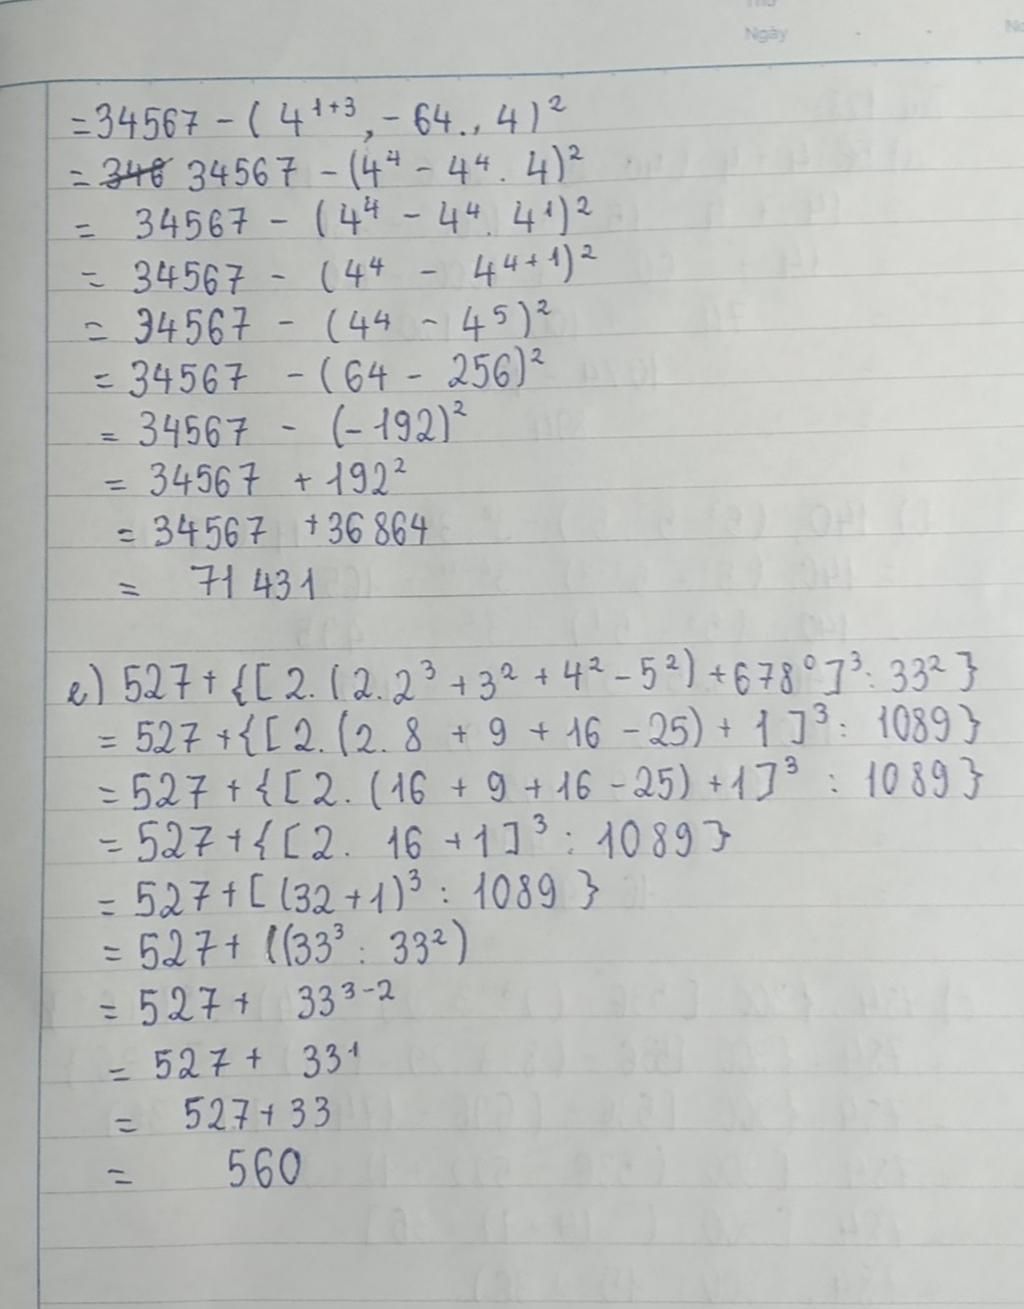 Ngày
=34567 - ( 4¹⁺³, - 64 ., 4)²
= ~~346~~ 34567 - (4⁴ - 4⁴. 4)²
= 34567 - (4⁴ - 4⁴. 4¹)²
= 34567 - (4⁴ - 4⁴⁺¹)²
= 34567 - (4⁴ - 4⁵)²
= 34567 - (64 - 256)²
= 34567 - (-192)²
= 34567 + 192²
= 34567 + 36 864
= 71 431
e) 527 + {[ 2. ( 2. 2³ + 3² + 4² - 5²) + 678⁰ ]³ : 33² }
= 527 + {[ 2. (2. 8 + 9 + 16 - 25) + 1 ]³ : 1089}
= 527 + {[ 2. (16 + 9 + 16 - 25) + 1 ]³ : 1089}
= 527 + {[ 2. 16 + 1 ]³ : 1089}
= 527 + [ (32 + 1)³ : 1089 }
= 527 + ((33³ : 33²)
= 527 + 33³⁻²
= 527 + 33¹
= 527 + 33
= 560